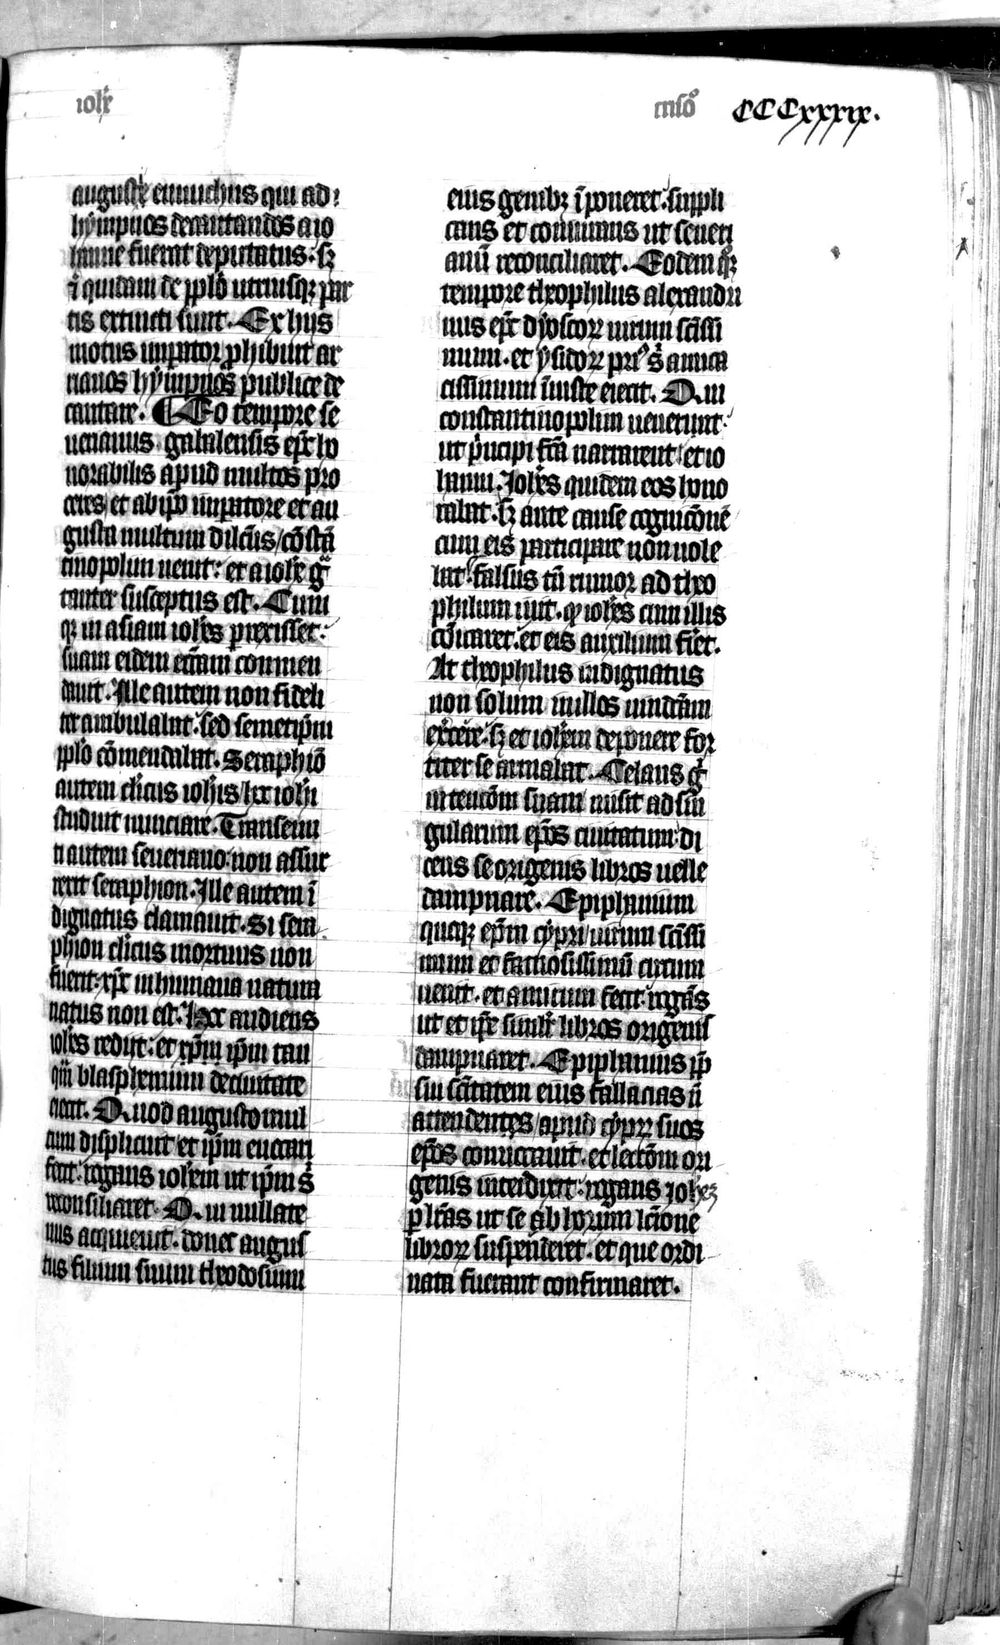 ioħe
criso° CCCxxxix.
auguste eunuchus qui ad
hympnos decantandos a io
hanne fuerat deputatus. sʒ
⁊ quidam de pplo utriusqʒ par
tis extincti sunt. Ex hijs
motus impator phibuit ar
rianos hympnos publice de
cantare. Eo tempore se
uerianus gabalensis epc ho
norabilis apud multos pro
ceres et ab ipo impatore et au
gusta multum dilcus/ cōstā
tinopolim uenit: et a iohe gͣ
tanter susceptus est. Cum
qʒ in asiam iohes prexisset:
suam eidem eccam conmen
dauit. Ille autem non fideli
ter ambulabat. sed semetipm
pplo cōmendabat. Seraphiō
autem clicus iohis hec iohi
studuit nunciare. Transeun
ti autem seueriano non assur
rexit seraphion. Ille autem ī
dignatus clamauit. Si sera
phion clicus mortuus non
fuerit: xpc in humana natura
natus non est. Hec audiens
iohes redijt: et xpm ipm tan
qm blasphemum de ciuitate
eiecit. Quod auguste mul
tum displicuit et ipm euocari
fecit. rogans iohem ut ipm s
reconsiliaret. Qui nullate
nus acquieuit. donec augus
tus filium suum theodosium
eius genibʒ īponeret. suppli
cans et coniurans ut seueri
anū reconciliaret. Eodem qʒ
tempore theophilus alexandri
nus epc dyoscorꝝ uirum sctissi
mum. et ysidorꝝ priꝰ s amica
cissimum iniuste eiecit. Qui
constantinopolim uenerunt
ut pncipi fca narrarent et io
hanni. Iohes quidem eos hono
rabat. sʒ ante cause cognicōnē
cum eis participare non uole
bat. falsus tn rumor ad theo
philum iuit. qꝫ iohes cum illis
cōicaret. et eis auxilium firet.
At theophilus indignatus
non solum in illos uindcam
excere. sʒ et iohem deponere for
titer se armabat. Celans g
intencōm suam misit ad sin
gularum epos ciuitatum di
cens se origenis libros uelle
dampnare. Epiphanium
quoqʒ epm cypri uirum sctissi
mum et famosissimū circum
uenit. et amicum fecit. rogās
ut et ipe simili libros origenis
dampnaret. Epiphanius ip
siu sctitatem eius fallacias n̄
attendentes/ apud cyprꝝ suos
epos conuocauit. et lectōm ori
genis interdixit. rogans iohez
p lras ut se ab horum lcione
librorꝝ suspenderet. et que ordi
nata fuerant confirmaret.